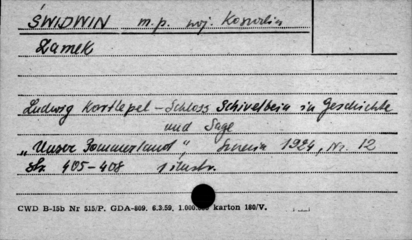 ŚWIDWIN m.p. woj. Koszalin
Zamek
Ludwig Kortlepel - Schloss Schivelbein in Geschichte
und Sage
"Unser Pommerland", 1924, Nr. 12
Str. 405-408 1 ilustr.
CWD B-15b Nr 515/P. GDA-809. 6.3.59. 1.000.000 karton 180/V.